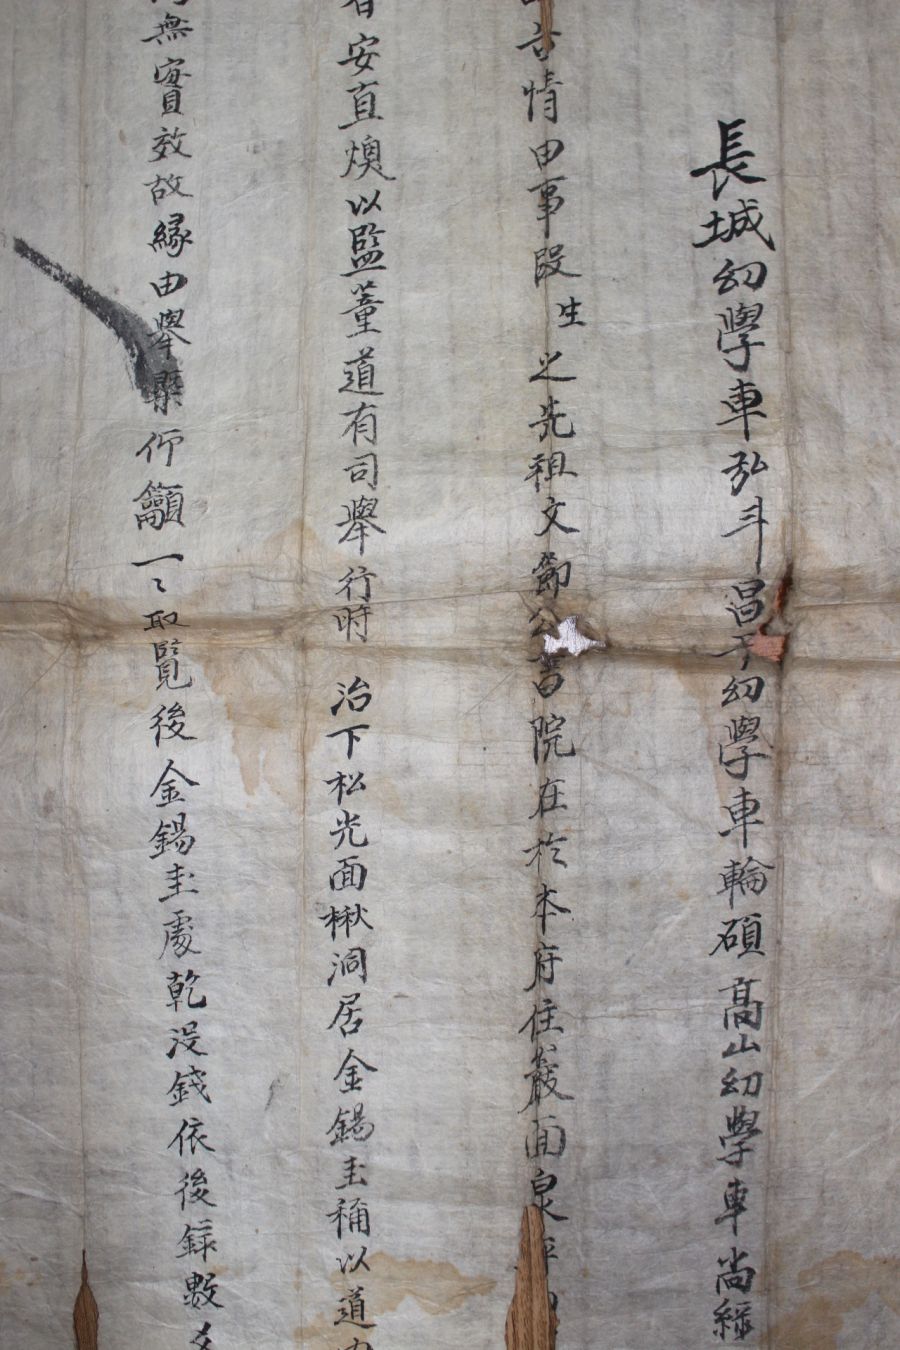 長城幼學車弘斗昌平幼學車輪碩高山幼學車尚綠
右情由事段生之先祖文節公書院在於本府住巖面泉坪
安直煥以監董道有司擧行時治下松光面楸洞居金錫圭稱以道內
無實效故緣由擧槩仰籲一〻取覽後金錫圭處乾沒錢依後錄數